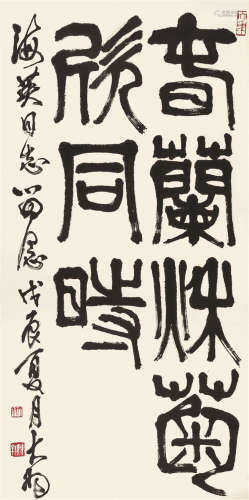 春蘭秋菊
欣同時
海英同志留念戊辰夏月大羽